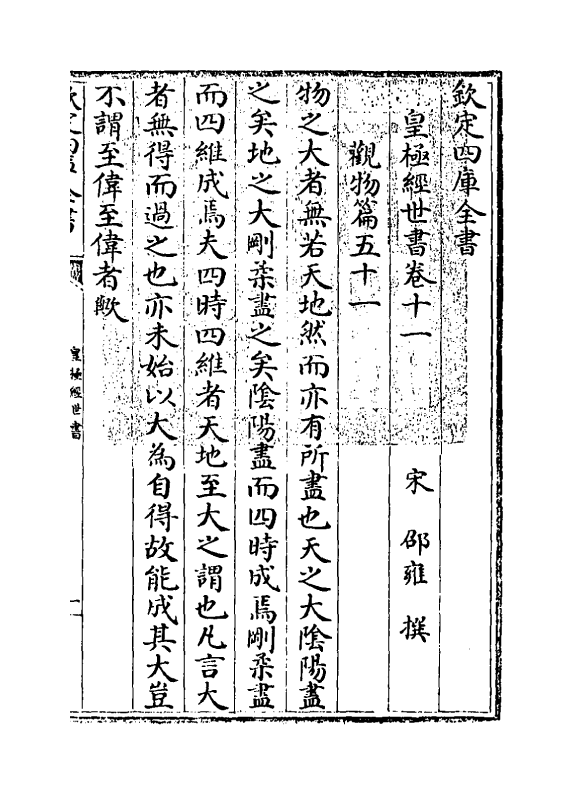 欽定四庫全書
皇極經世書卷十一　宋　邵雍　撰
觀物篇五十一
物之大者無若天地然而亦有所盡也天之大陰陽盡
之矣地之大剛柔盡之矣陰陽盡而四時成焉剛柔盡
而四維成焉夫四時四維者天地至大之謂也凡言大
者無得而過之也亦未始以大為自得故能成其大豈
不謂至偉至偉者歟
欽定四庫全書
皇極經世書
一